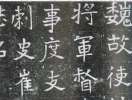 魏故使
將軍督
事度支
刺史崔